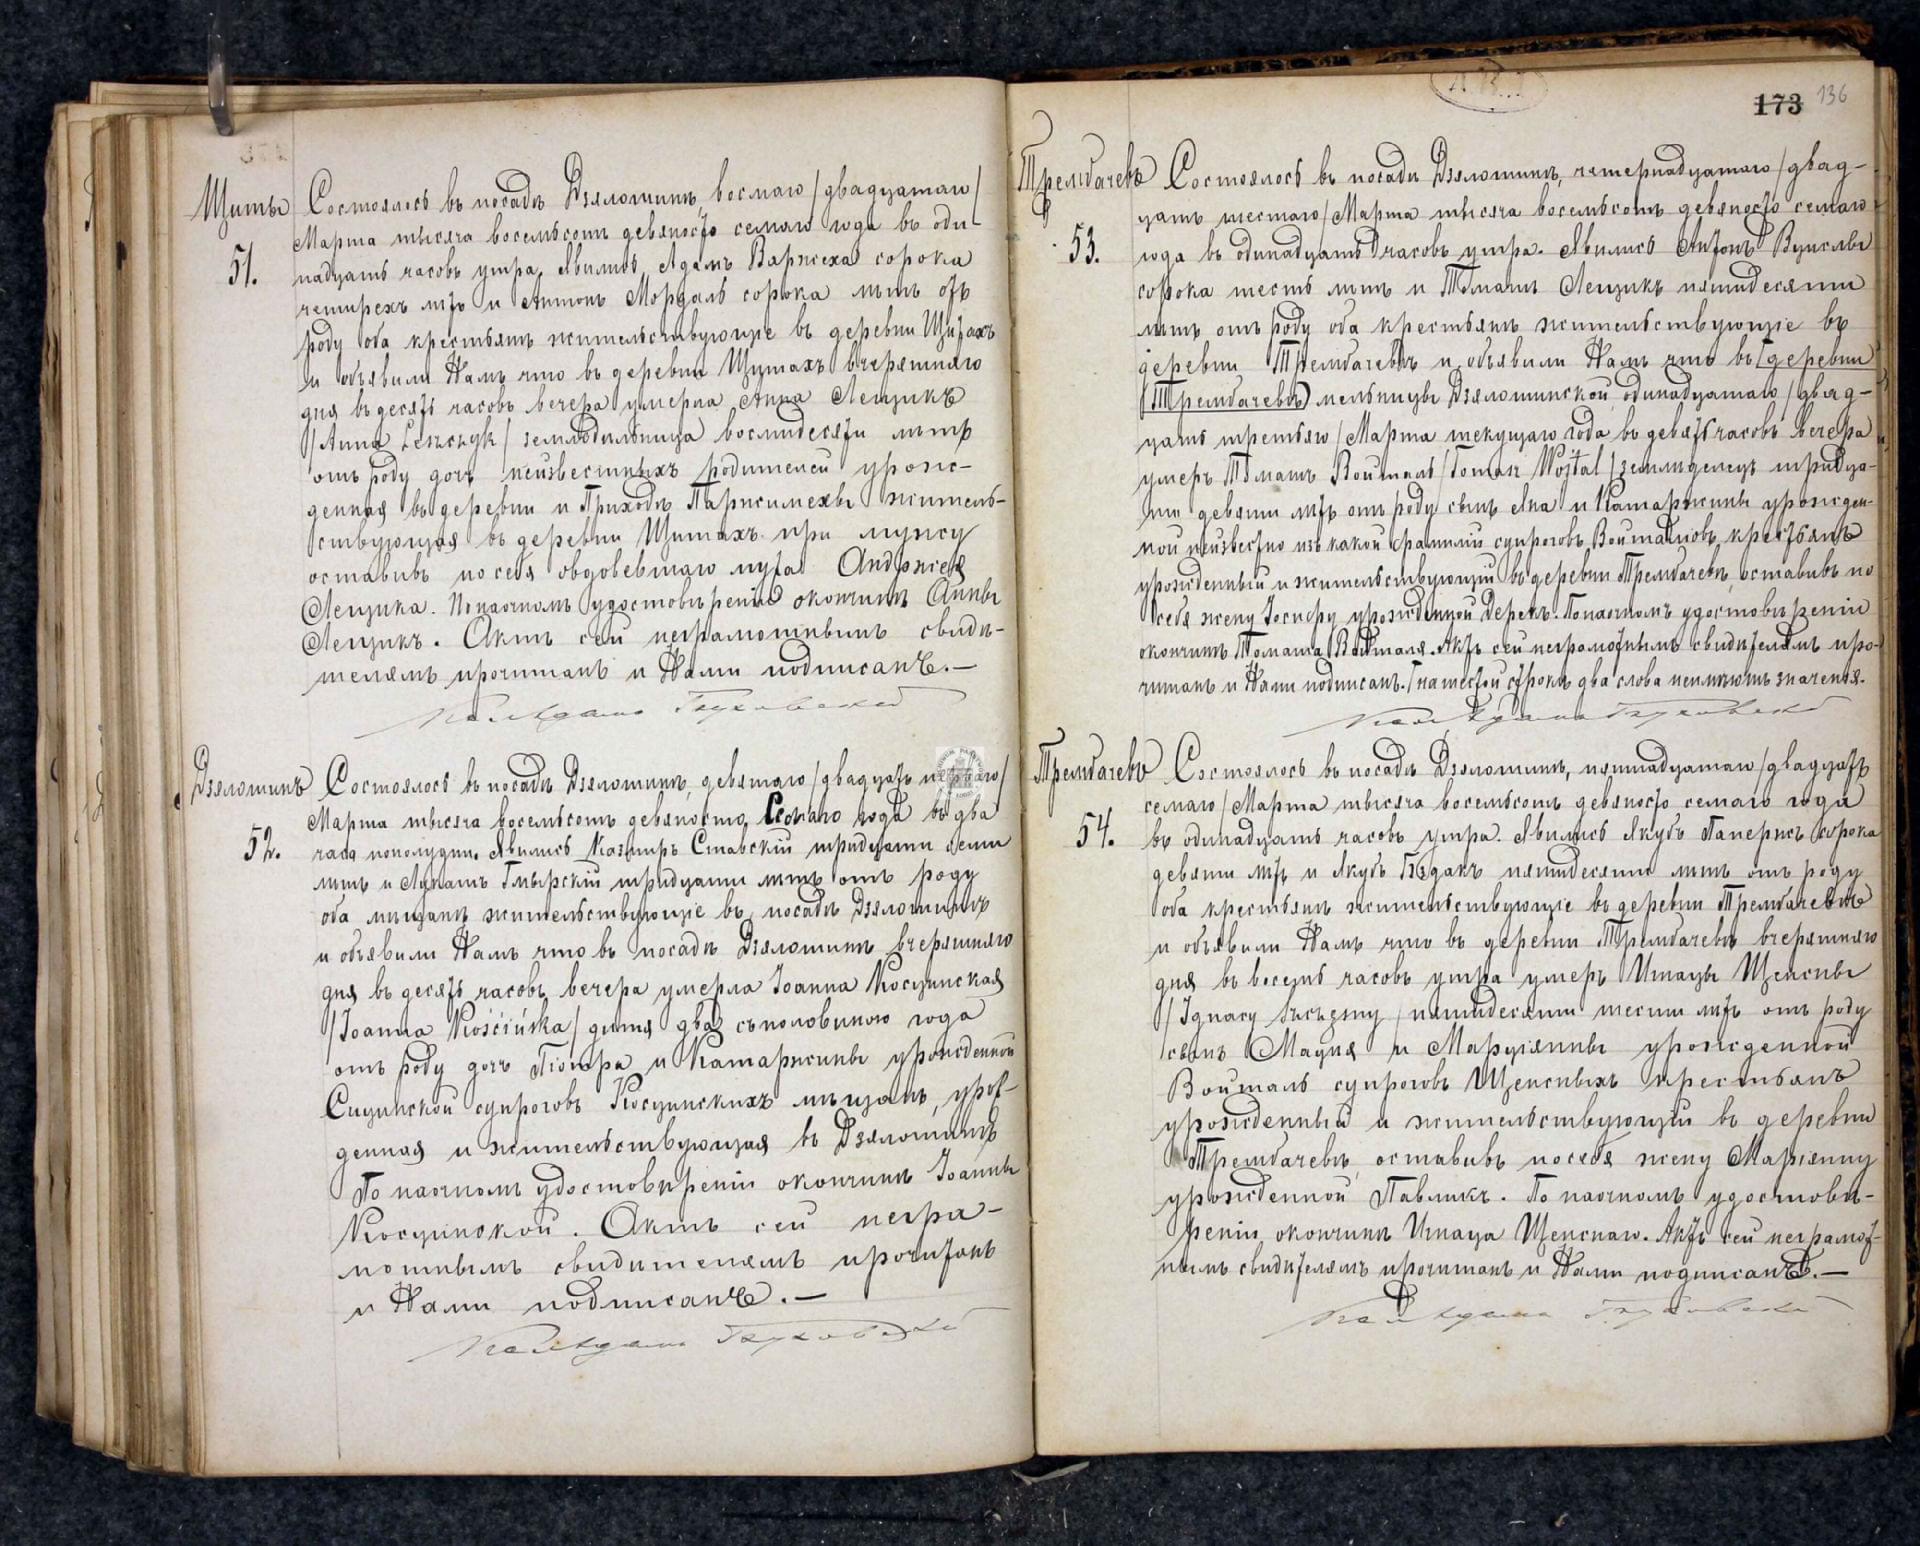 Щиты
51.
Состоялось въ посадѣ Дзялошинѣ, восмаго /двадцатаго/
Марта тысяча восемьсотъ девяносто семаго года въ оди-
надцать часовъ утра. Явились Адамъ Варжеха сорока
четырехъ лѣтъ и Антонъ Мордаль сорока лѣтъ отъ
роду оба крестьянѣ жительствующіе въ деревни Щитахъ
и объявили Намъ что въ деревни Щитахъ вчерашняго
дня въ десять часовъ вечера умерла Анна Лещикъ
/Anna Leszczyk/ земледѣльница восмидесяти лѣтъ
отъ роду дочь неизвестныхъ родителей урож-
денная въ деревни и Приходѣ Паржимехы житель-
ствующая въ деревни Щитахъ при мужу
оставивъ по себѣ овдовевшаго мужа Андржея
Лещика. По наочномъ удостовѣреніи окончинѣ Анны
Лещикъ. Актъ сей неграмотнымъ свидѣ-
телямъ прочитанъ и Нами подписанъ.—
Дзялошинъ
52.
Состоялось въ посадѣ Дзялошинѣ, девятаго /двадцать перваго/
Марта тысяча восемьсотъ девяносто Семаго года въ два
часа пополудни. Явились Казимиръ Ставскій тридцати семи
лѣтъ и Лукашъ Гмырскій тридцати лѣтъ отъ роду
оба мѣщанѣ жительствующіе въ посадѣ Дзялошинѣ
и объявили Намъ что въ посадѣ Дзялошинѣ вчерашняго
дня въ десять часовъ вечера умерла Іоанна Косцинская
/Joanna Kościńska/ дитя два съ половиною года
отъ роду дочь Піотра и Катаржины урожденной
Сицинской супроговъ Косцинскихъ мѣщанъ, урож-
денная и жительствующая въ Дзялошинѣ
По наочномъ удостовѣреніи окончинѣ Іоанны
Косцинской. Актъ сей негра-
мотнымъ свидѣтелямъ прочитанъ
и Нами подписанъ.—
173 136
Трембачевъ
53.
Состоялось въ посадѣ Дзялошинѣ, четернадцатаго /двад-
цать шестаго/ Марта тысяча восемьсотъ девяносто семаго
года въ одинадцать часовъ утра. Явились Антонъ
сорока шесть лѣтъ и Томашъ Лещикъ пятидесяти
лѣтъ отъ роду оба крестьянѣ жительствующіе въ
деревни Трембачевѣ и объявили Намъ что въ /деревни
Трембачевѣ/ мельницы Дзялошинской одинадцатаго /двад-
цать третьяго/ Марта текущаго года въ девять часовъ вечера
умеръ Томашъ Войталь /Tomasz Wojtal/ земледелецъ тридца-
ти девяти лѣтъ отъ роду сынъ Яна и Катаржины урожден-
ной неизвестно изъ какой фамиліи супроговъ Войталовъ, крестьянъ
урожденный и жительствующій въ деревни Трембачевѣ, оставивъ по
себѣ жену Іосифу урожденной Дерекъ. По наочномъ удостовѣреніи
окончинѣ Томаша Войталя. Актъ сей неграмотнымъ свидѣтелямъ про-
читанъ и Нами подписанъ. /на шестой строкѣ два слова неимѣютъ значенія.
Трембачевъ
54.
Состоялось въ посадѣ Дзялошинѣ, пятнадцатаго /двадцать
семаго/ Марта тысяча восемьсотъ девяносто семаго года
въ одинадцать часовъ утра. Явились Якубъ Паперисъ сорока
девяти лѣтъ и Якубъ пятидесяти лѣтъ отъ роду
оба крестьянѣ жительствующіе въ деревни Трембачевѣ
и объявили Намъ что въ деревни Трембачевѣ вчерашняго
дня въ восемь часовъ утра умеръ Игнацы Щенсны
/Ignacy Szczęsny/ пятидесяти шести лѣтъ отъ роду
сынъ Мацея и Марціанны урожденной
Войталь супроговъ Щенсныхъ крестьянъ
урожденный и жительствующій въ деревни
Трембачевѣ оставивъ по себѣ жену Маріанну
урожденной Павликъ. По наочномъ удостовѣ-
реніи окончинѣ Игнаца Щенснаго. Актъ сей неграмот-
нымъ свидѣтелямъ прочитанъ и Нами подписанъ.—